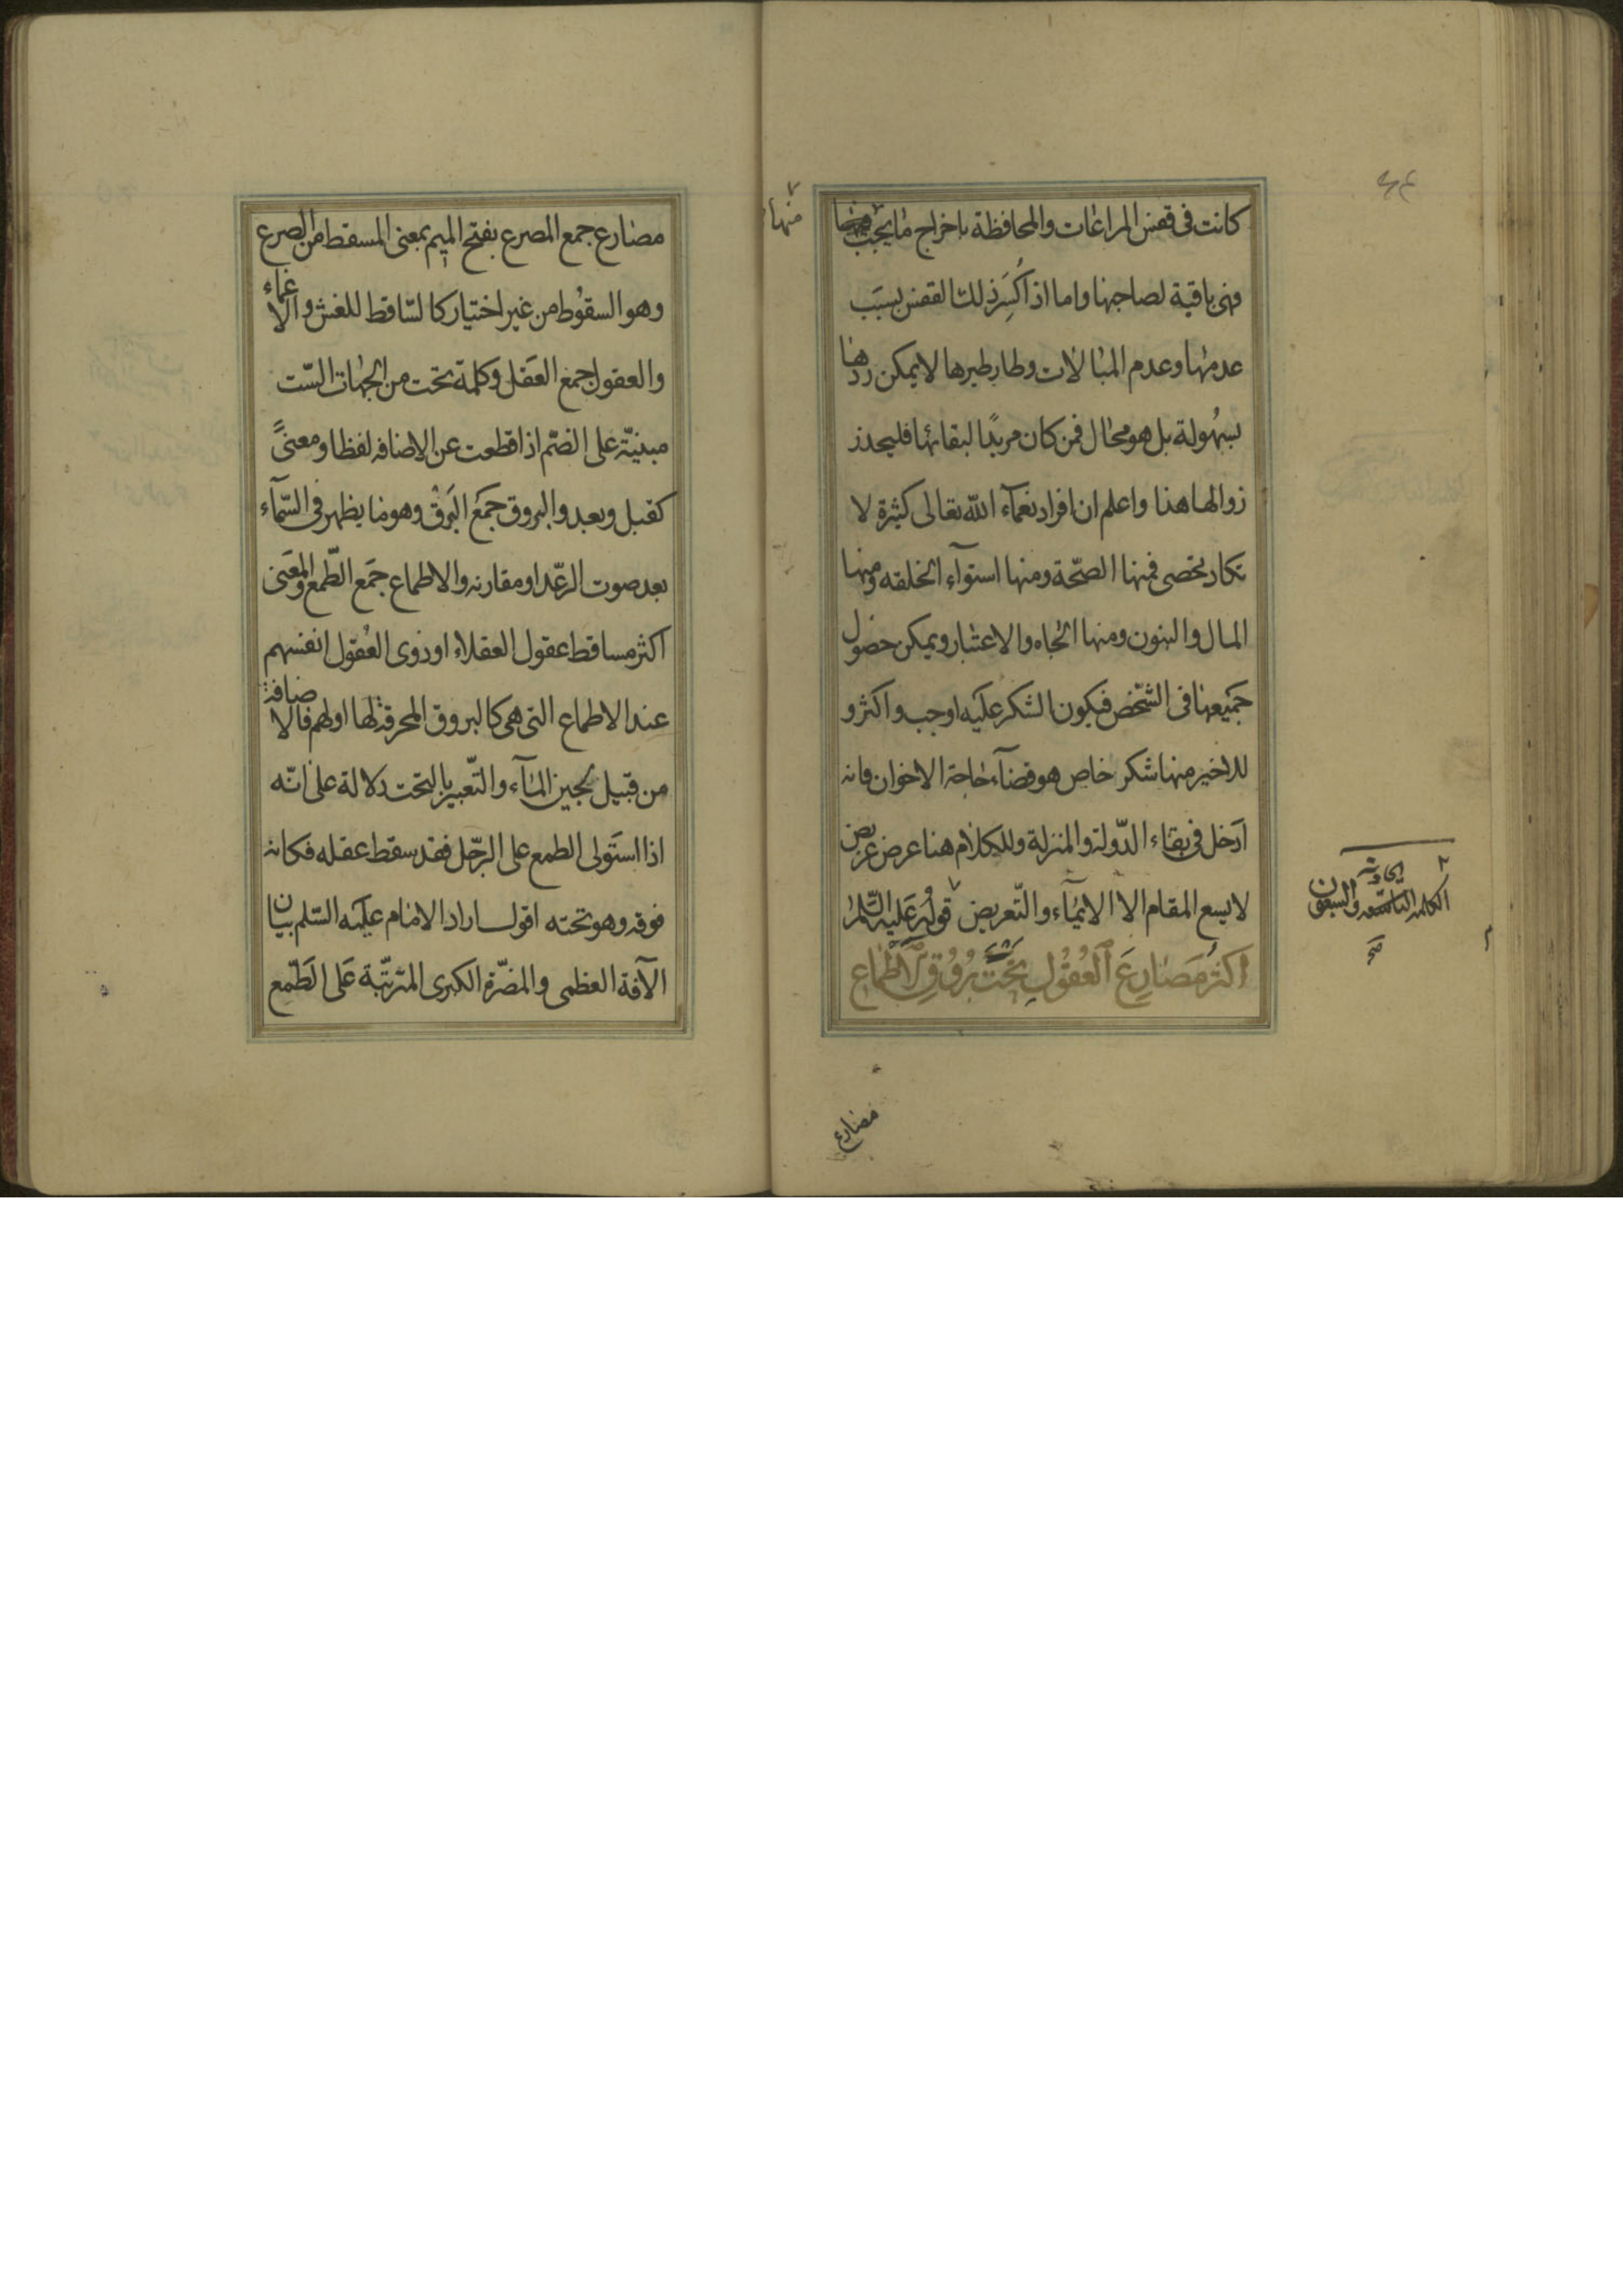 كانت فى قفس المراعات والمحافظة باخراج ما يجب
منها
فهى باقية لصاحبها واما اذا كُسِرَ ذلك القفس بسبب
عدمها وعدم المبالات وطار طيرها لا يمكن ردها
بسهُولة بل هو محال فمن كان مريدًا لبقائها فليحذر
زوالها هذا واعلم ان افراد نعمآء الله تعالى كثيرة لا
تكاد تحصى فمنها الصحّة ومنها استوآء الخلقه ومنها
المال والبنون ومنها الجاه والاعتبار ويمكن حصول
جميعها فى الشّخص فيكون الشكر عليه اوجب واكثر و
للاخير منها شكر خاص هو قضآء حاجة الاخوان فانه
ادخل فى بقاء الدّولة والمنزلة وللكلام هنا عرض عريض
لا يسع المقام الا الايمآء والتّعريض قوله عليه السّلم
اكثرُ مَصَارِعَ العُقُولِ تَحْتَ بُرُوقِ الاَطْمَاعِ
الكلمة
والسبعون
صح
مصارع
مصارع جمع المصرع بفتح الميم بمعنى المسقط من الصرع
وهو السقوُط من غير اختيار كالسّاقط للغش والاغماء
والعقول جمع العقل وكلمة تحت من الجهات السّت
مبنيّة على الضّم اذا قطعت عن الاضافه لفظا ومعنىً
كقبل وبعد والبروق جمَع البَرقْ وهو ما يظهر فى السّمآء
بعد صوت الرعّد او مقارنه والاطماع جمَع الطّمع والمعَنى
اكثر مساقط عقول العقلاء او ذوى العُقول انفسهم
عند الاطماع التى هى كالبروق المحرقة لها او لهم فالاضافة
من قبيل لجين المآء والتّعبير بالتحت دلالة على انّه
اذا استَولى الطمع على الرّجل فقد سقط عقله فكانه
فوقه وهو تحته اقول اراد الامام عليه السّلم بيان
الآفة العظمى والمضرّة الكبرى المترتّبة عَلى الطّمع